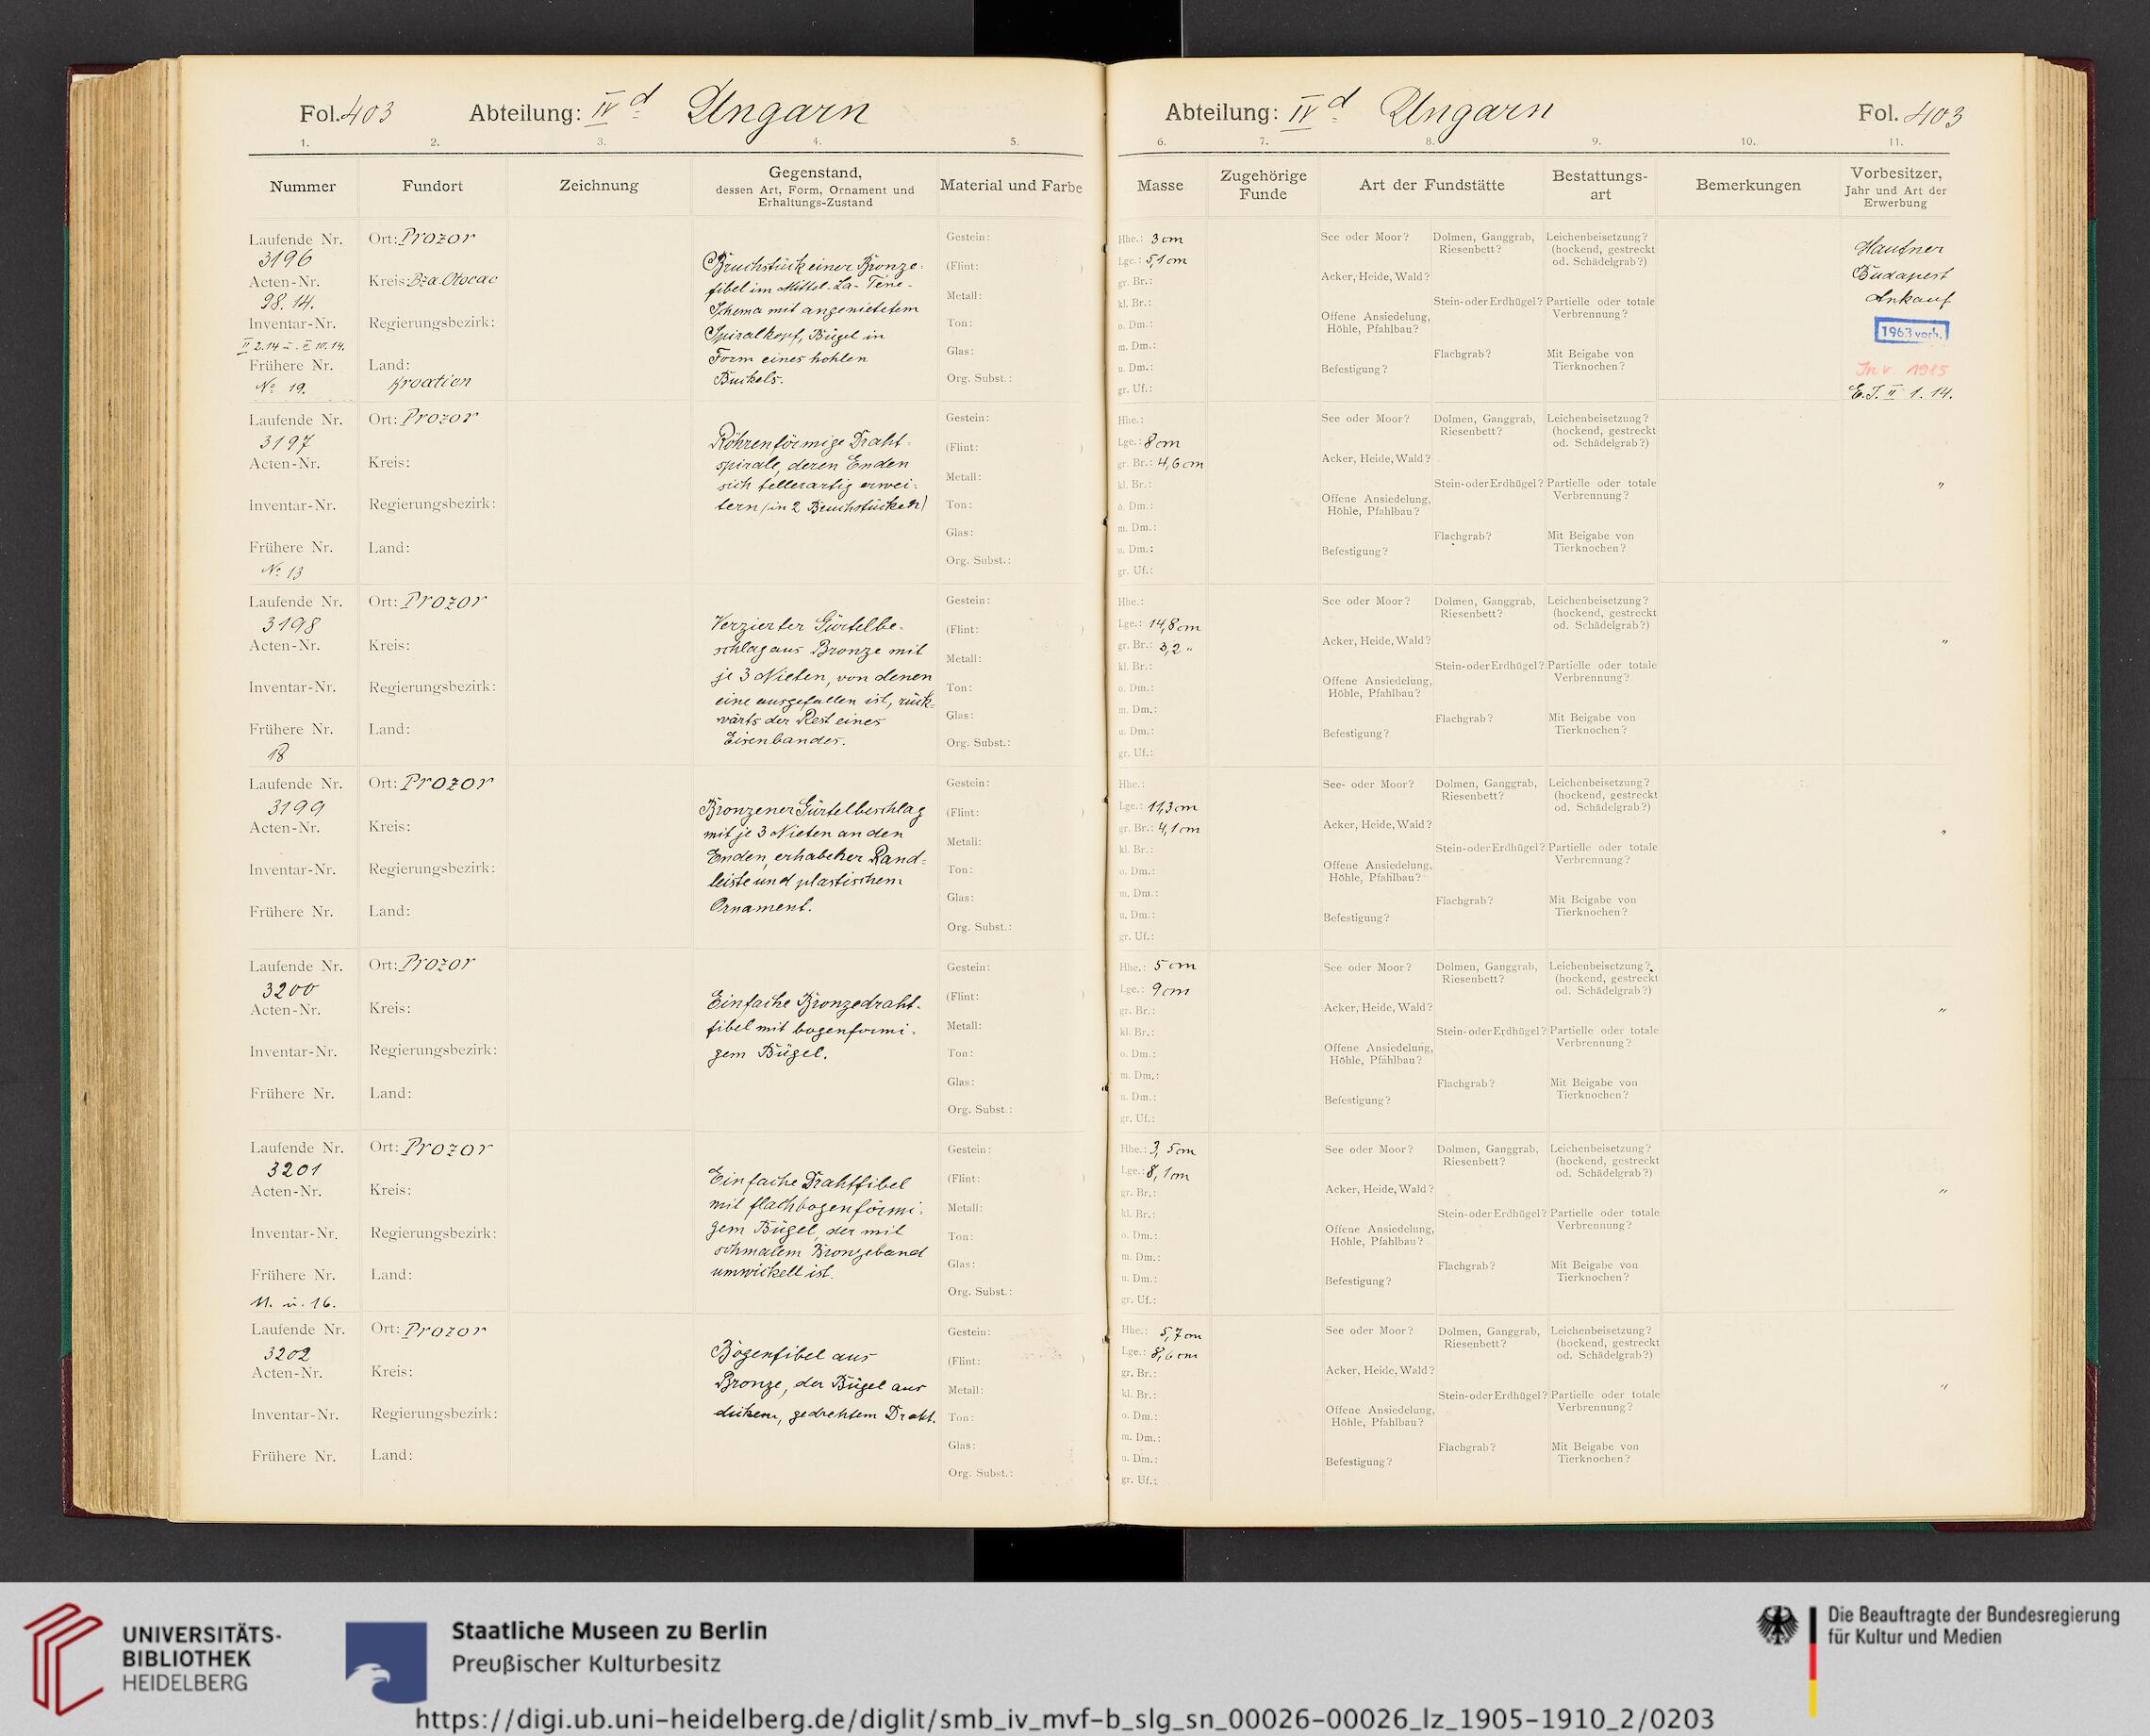 Fol. 403 Abteilung: IV d Ungarn
1. 2. 3. 4. 5.
Nummer Fundort Zeichnung Gegenstand, dessen Art, Form, Ornament und Erhaltungs-Zustand Material und Farbe
Abteilung: IV d Ungarn Fol. 403
6. 7. 8. 9. 10. 11.
Masse Zugehörige Funde Art der Fundstätte Bestattungsart Bemerkungen Vorbesitzer, Jahr und Art der Erwerbung
Laufende Nr.
3196
Acten-Nr.
98.14.
Inventar-Nr.
II 2.14 u. II 10.14.
Frühere Nr.
No 19.
Ort: Prozor
Kreis: Bza. Otocac
Regierungsbezirk:
Land:
Kroatien
Bruchstück einer Bronze-
fibel im Mittel-La-Tène-
Schema mit angenietetem
Spiralkopf, Bügel in
Form eines hohlen
Buckels.
Gestein:
(Flint: )
Metall:
Ton:
Glas:
Org. Subst.:
Hhe.: 3 cm
Lge.: 5,1 cm
gr. Br.:
kl. Br.:
o. Dm.:
m. Dm.:
u. Dm.:
gr. Uf.:
See oder Moor?
Acker, Heide, Wald?
Offene Ansiedelung,
Höhle, Pfahlbau?
Befestigung?
Dolmen, Ganggrab,
Riesenbett?
Stein- oder Erdhügel?
Flachgrab?
Leichenbeisetzung?
(hockend, gestreckt
od. Schädelgrab?)
Partielle oder totale
Verbrennung?
Mit Beigabe von
Tierknochen?
Budapest
Ankauf
1963 vorh.
Inv. 1985
E.J. II 1.14.
Laufende Nr.
3197
Acten-Nr.
Inventar-Nr.
Frühere Nr.
No 13
Ort: Prozor
Kreis:
Regierungsbezirk:
Land:
Röhrenförmige Draht-
spirale, deren Enden
sich tellerartig erwei-
tern (in 2 Bruchstücken)
Gestein:
(Flint: )
Metall:
Ton:
Glas:
Org. Subst.:
Hhe.:
Lge.: 8 cm
gr. Br.: 4,6 cm
kl. Br.:
o. Dm.:
m. Dm.:
u. Dm.:
gr. Uf.:
See oder Moor?
Acker, Heide, Wald?
Offene Ansiedelung,
Höhle, Pfahlbau?
Befestigung?
Dolmen, Ganggrab,
Riesenbett?
Stein- oder Erdhügel?
Flachgrab?
Leichenbeisetzung?
(hockend, gestreckt
od. Schädelgrab?)
Partielle oder totale
Verbrennung?
Mit Beigabe von
Tierknochen?
"
Laufende Nr.
3198
Acten-Nr.
Inventar-Nr.
Frühere Nr.
18
Ort: Prozor
Kreis:
Regierungsbezirk:
Land:
Verzierter Gürtelbe-
schlag aus Bronze mit
je 3 Nieten, von denen
eine ausgefallen ist, rück-
wärts der Rest eines
Eisenbandes.
Gestein:
(Flint: )
Metall:
Ton:
Glas:
Org. Subst.:
Hhe.:
Lge.: 14,8 cm
gr. Br.: 3,2 "
kl. Br.:
o. Dm.:
m. Dm.:
u. Dm.:
gr. Uf.:
See oder Moor?
Acker, Heide, Wald?
Offene Ansiedelung,
Höhle, Pfahlbau?
Befestigung?
Dolmen, Ganggrab,
Riesenbett?
Stein- oder Erdhügel?
Flachgrab?
Leichenbeisetzung?
(hockend, gestreckt
od. Schädelgrab?)
Partielle oder totale
Verbrennung?
Mit Beigabe von
Tierknochen?
"
Laufende Nr.
3199
Acten-Nr.
Inventar-Nr.
Frühere Nr.
Ort: Prozor
Kreis:
Regierungsbezirk:
Land:
Bronzener Gürtelbeschlag
mit je 3 Nieten an den
Enden, erhabener Rand-
leiste und plastischem
Ornament.
Gestein:
(Flint: )
Metall:
Ton:
Glas:
Org. Subst.:
Hhe.:
Lge.: 11,3 cm
gr. Br.: 4,1 cm
kl. Br.:
o. Dm.:
m. Dm.:
u. Dm.:
gr. Uf.:
See- oder Moor?
Acker, Heide, Wald?
Offene Ansiedelung,
Höhle, Pfahlbau?
Befestigung?
Dolmen, Ganggrab,
Riesenbett?
Stein- oder Erdhügel?
Flachgrab?
Leichenbeisetzung?
(hockend, gestreckt
od. Schädelgrab?)
Partielle oder totale
Verbrennung?
Mit Beigabe von
Tierknochen?
"
Laufende Nr.
3200
Acten-Nr.
Inventar-Nr.
Frühere Nr.
Ort: Prozor
Kreis:
Regierungsbezirk:
Land:
Einfache Bronzedraht-
fibel mit bogenförmi-
gem Bügel.
Gestein:
(Flint: )
Metall:
Ton:
Glas:
Org. Subst.:
Hhe.: 5 cm
Lge.: 9 cm
gr. Br.:
kl. Br.:
o. Dm.:
m. Dm.:
u. Dm.:
gr. Uf.:
See oder Moor?
Acker, Heide, Wald?
Offene Ansiedelung,
Höhle, Pfahlbau?
Befestigung?
Dolmen, Ganggrab,
Riesenbett?
Stein- oder Erdhügel?
Flachgrab?
Leichenbeisetzung?
(hockend, gestreckt
od. Schädelgrab?)
Partielle oder totale
Verbrennung?
Mit Beigabe von
Tierknochen?
"
Laufende Nr.
3201
Acten-Nr.
Inventar-Nr.
Frühere Nr.
11. u. 16.
Ort: Prozor
Kreis:
Regierungsbezirk:
Land:
Einfache Drahtfibel
mit flachbogenförmi-
gem Bügel, der mit
schmalem Bronzeband
umwickelt ist.
Gestein:
(Flint: )
Metall:
Ton:
Glas:
Org. Subst.:
Hhe.: 3,5 cm
Lge.: 8,1 cm
gr. Br.:
kl. Br.:
o. Dm.:
m. Dm.:
u. Dm.:
gr. Uf.:
See oder Moor?
Acker, Heide, Wald?
Offene Ansiedelung,
Höhle, Pfahlbau?
Befestigung?
Dolmen, Ganggrab,
Riesenbett?
Stein- oder Erdhügel?
Flachgrab?
Leichenbeisetzung?
(hockend, gestreckt
od. Schädelgrab?)
Partielle oder totale
Verbrennung?
Mit Beigabe von
Tierknochen?
"
Laufende Nr.
3202
Acten-Nr.
Inventar-Nr.
Frühere Nr.
Ort: Prozor
Kreis:
Regierungsbezirk:
Land:
Bogenfibel aus
Bronze, der Bügel aus
dickem, gedrehtem Draht.
Gestein:
(Flint: )
Metall:
Ton:
Glas:
Org. Subst.:
Hhe.: 5,7 cm
Lge.: 8,6 cm
gr. Br.:
kl. Br.:
o. Dm.:
m. Dm.:
u. Dm.:
gr. Uf.:
See oder Moor?
Acker, Heide, Wald?
Offene Ansiedelung,
Höhle, Pfahlbau?
Befestigung?
Dolmen, Ganggrab,
Riesenbett?
Stein- oder Erdhügel?
Flachgrab?
Leichenbeisetzung?
(hockend, gestreckt
od. Schädelgrab?)
Partielle oder totale
Verbrennung?
Mit Beigabe von
Tierknochen?
"
UNIVERSITÄTS-
BIBLIOTHEK
HEIDELBERG
Staatliche Museen zu Berlin
Preußischer Kulturbesitz
Die Beauftragte der Bundesregierung
für Kultur und Medien
https://digi.ub.uni-heidelberg.de/diglit/smb_iv_mvf-b_slg_sn_00026-00026_lz_1905-1910_2/0203